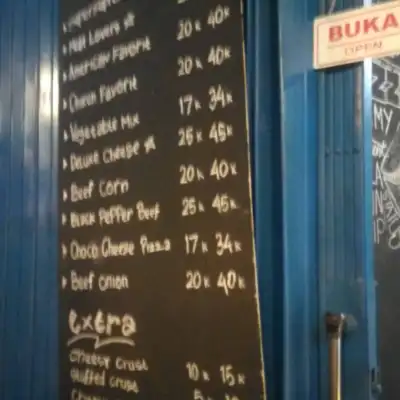 Meat Lovers
American Favorite 20k 40k
Favorite 20k 40k
Vegetable Mix 17k 34k
Deluxe Cheese 25k 45k
Beef Corn 20k 40k
Black Pepper Beef 25k 45k
Choco Cheese Pizza 17k 34k
Beef Onion 20k 40k
Extra
Cheesy Crust 10k 15k
Stuffed Crust
BUKA
OPEN
MY